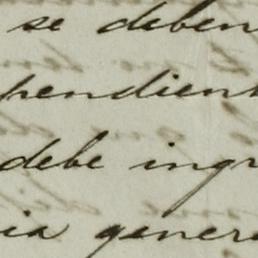 se deben
pendient
debe ingr
ia genera